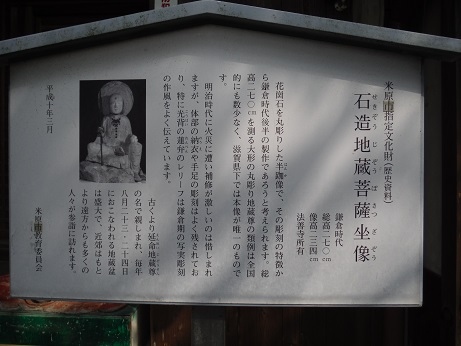 米原市指定文化財(歴史資料)
せきぞうじぞうぼさつざぞう
石造地蔵菩薩坐像
鎌倉時代
総高二七〇cm
像高一三四cm
法善寺所有
花崗石を丸彫りした半跏像で、その彫刻の特徴か
ら鎌倉時代後半の製作であろうと考えられます。総
高二七〇cmを測る大形の丸彫り地蔵尊の類例は全国
的にも数少なく、滋賀県下では本像が唯一のもので
す。
明治時代に火災に遭い補修が激しいのは惜しまれ
ますが、体部の納衣や手足の彫刻はよく残されてお
り、特に光背の蓮弁のレリーフは鎌倉期の写実彫刻
の作風をよく伝えています。
古くより延命地蔵尊
の名で親しまれ、毎年
八月二十三・二十四日
におこなわれる地蔵盆
は盛大で、近郊はもと
より遠方からも多くの
人々が参詣に訪れます。
平成十年三月
米原市教育委員会